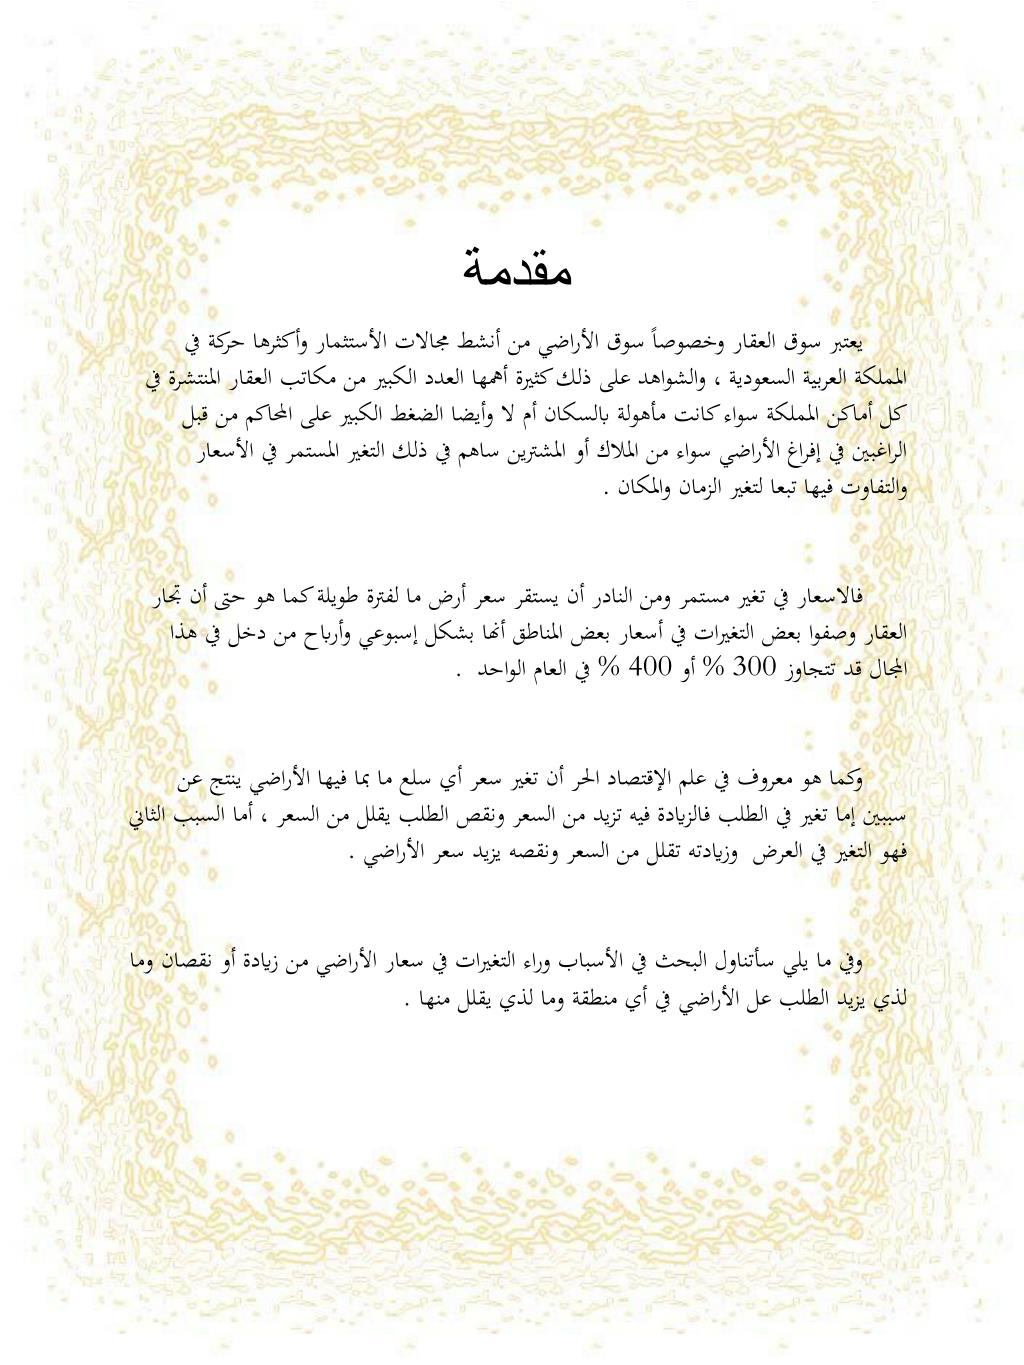 مقدمة
يعتبر سوق العقار وخصوصاً سوق الأراضي من أنشط مجالات الأستثمار وأكثرها حركة في
المملكة العربية السعودية ، والشواهد على ذلك كثيرة أهمها العدد الكبير من مكاتب العقار المنتشرة في
كل أماكن المملكة سواء كانت مأهولة بالسكان أم لا وأيضا الضغط الكبير على المحاكم من قبل
الراغبين في إفراغ الأراضي سواء من الملاك أو المشترين ساهم في ذلك التغير المستمر في الأسعار
والتفاوت فيها تبعا لتغير الزمان والمكان .
فالاسعار في تغير مستمر ومن النادر أن يستقر سعر أرض ما لفترة طويلة كما هو حتى أن تجار
العقار وصفوا بعض التغيرات في أسعار بعض المناطق أنها بشكل إسبوعي وأرباح من دخل في هذا
المجال قد تتجاوز 300 % أو 400 % في العام الواحد .
وكما هو معروف في علم الإقتصاد الحر أن تغير سعر أي سلع ما بما فيها الأراضي ينتج عن
سببين إما تغير في الطلب فالزيادة فيه تزيد من السعر ونقص الطلب يقلل من السعر ، أما السبب الثاني
فهو التغير في العرض وزيادته تقلل من السعر ونقصه يزيد سعر الأراضي .
وفي ما يلي سأتناول البحث في الأسباب وراء التغيرات في سعار الأراضي من زيادة أو نقصان وما
لذي يزيد الطلب عل الأراضي في أي منطقة وما لذي يقلل منها .